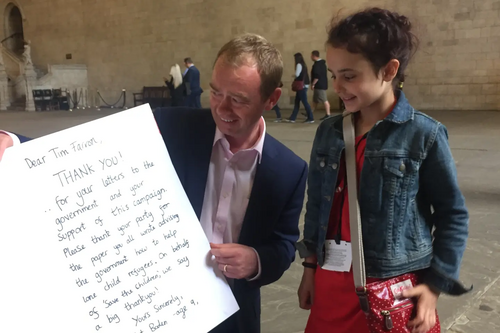 Dear Tim Farron,
THANK YOU!
.. for your letters to the
government and your
support of this campaign.
Please thank your party for
the paper you all wrote advising
the government how to help
lone child refugees. On behalf
of Save the Children, we say
a big thankyou!
Yours Sincerely,
Boden - age 9,